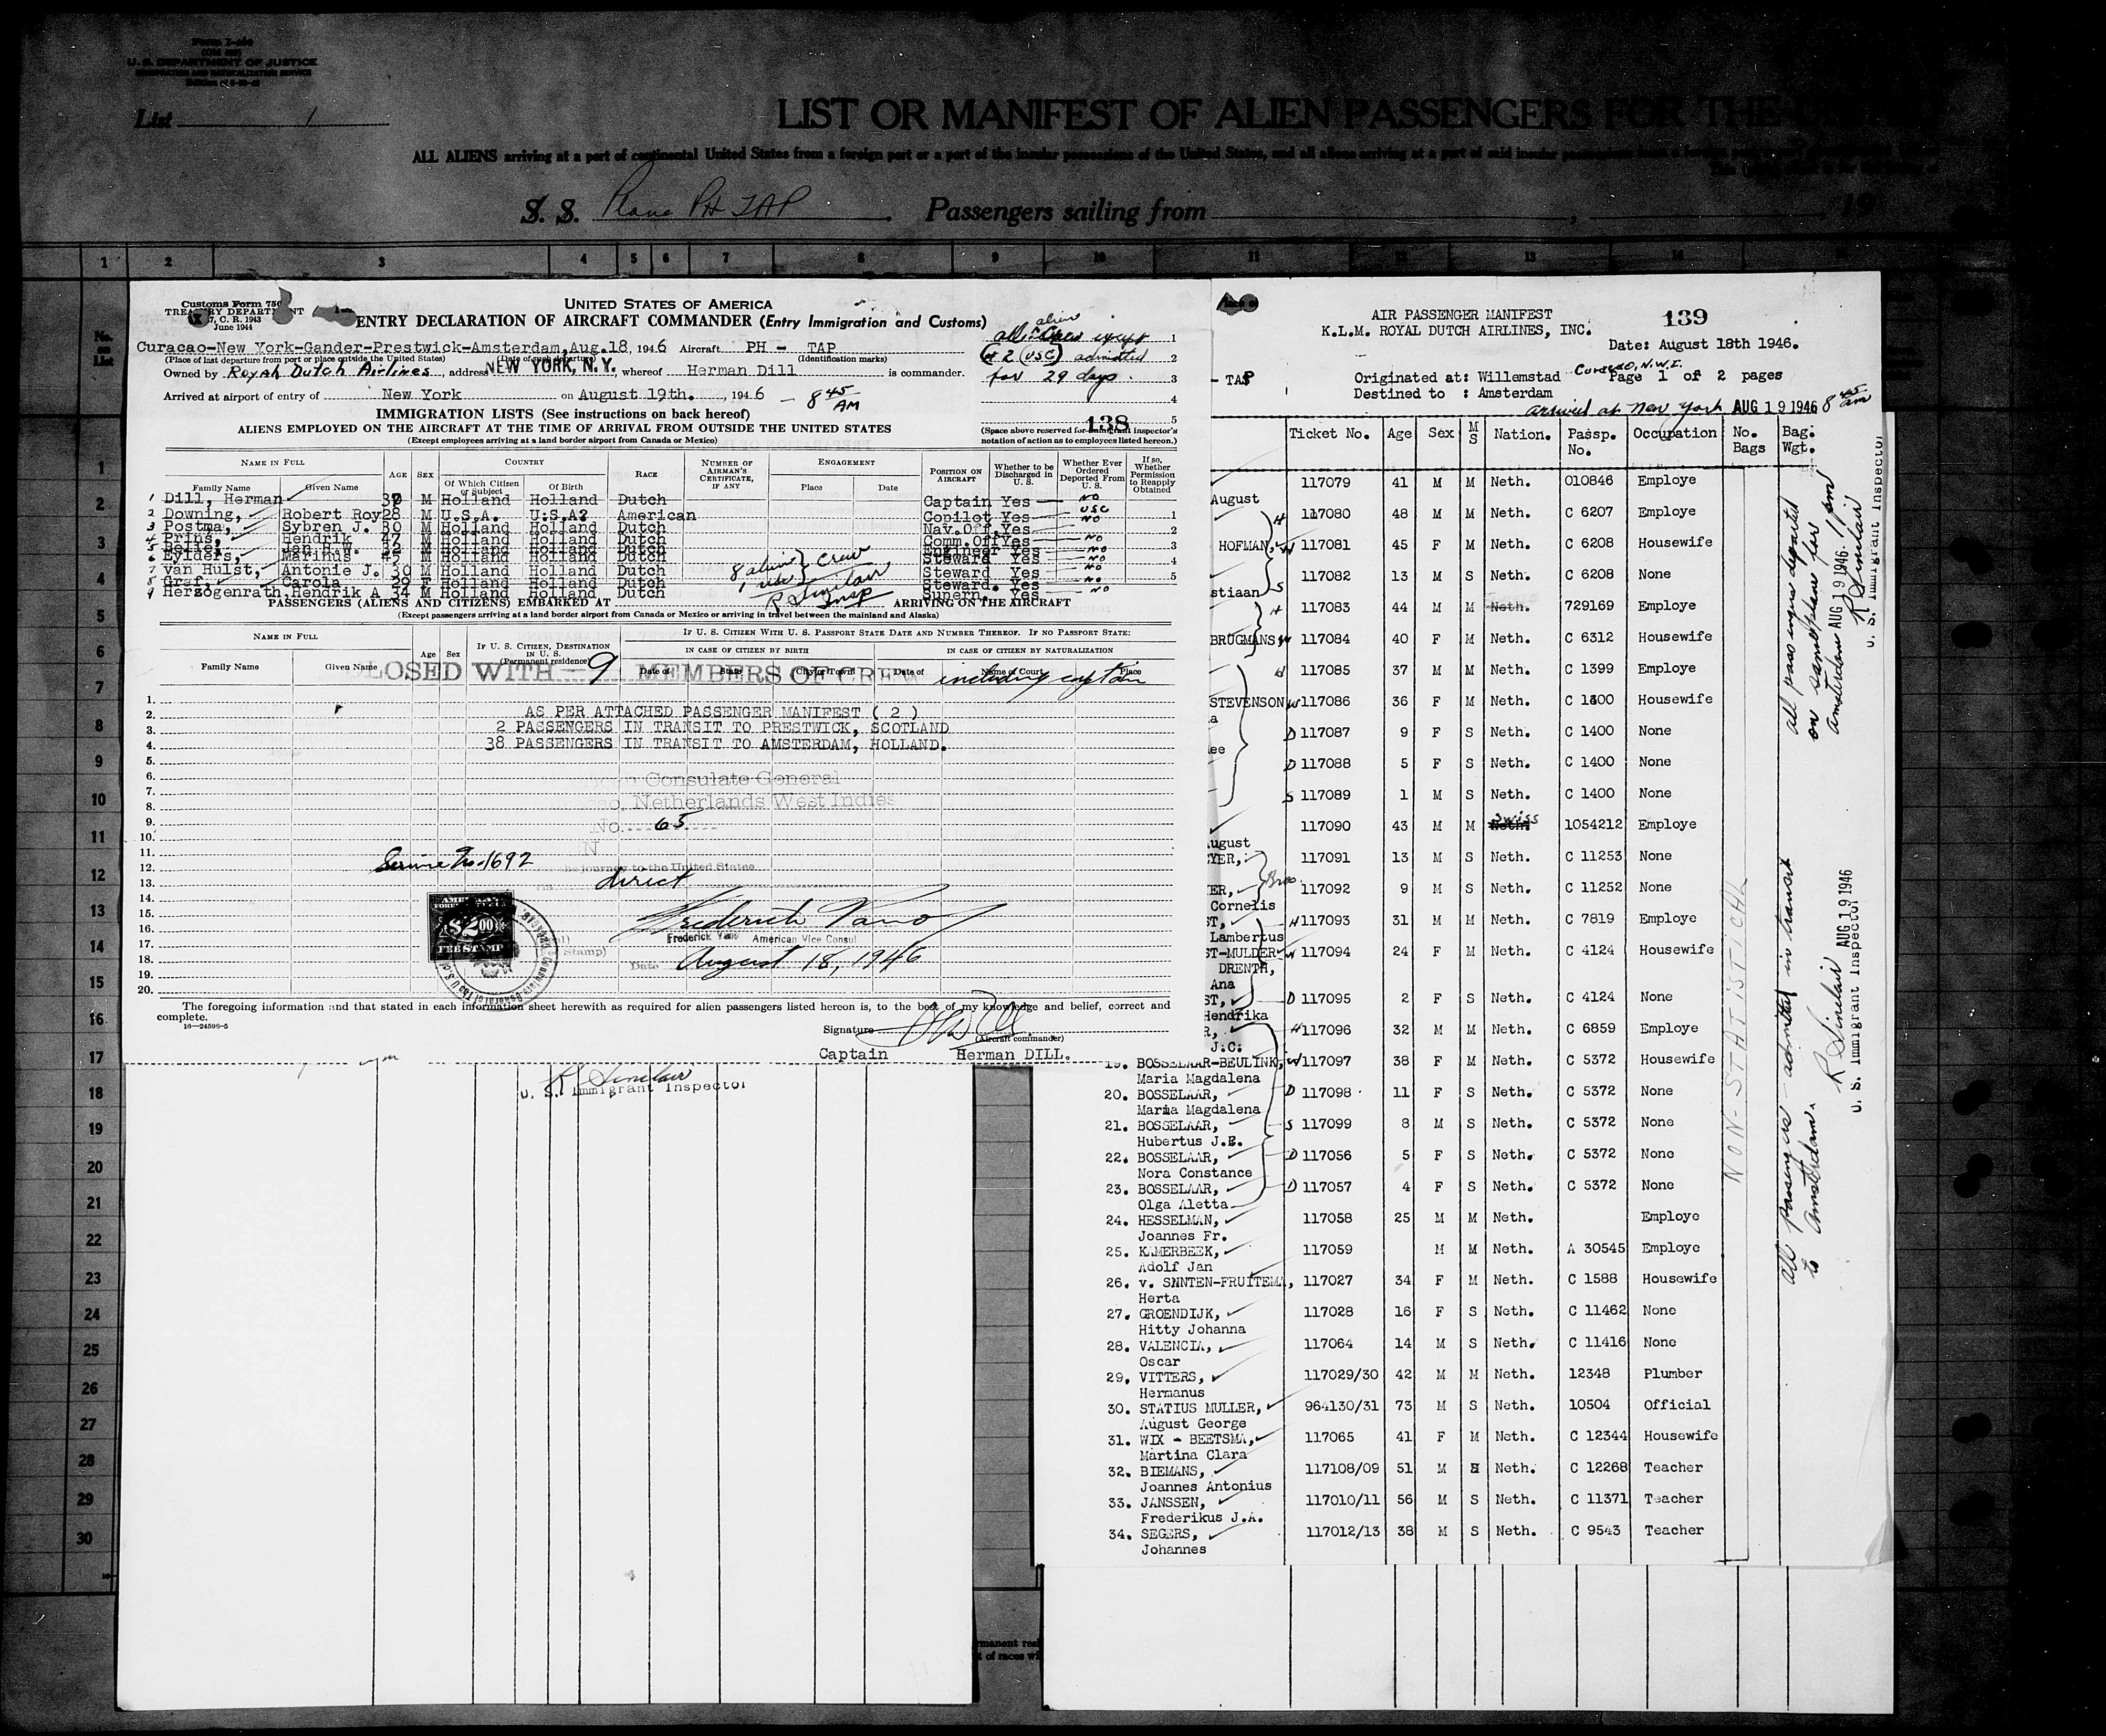 U. S. DEPARTMENT OF JUSTICE
IMMIGRATION AND NATURALIZATION SERVICE
List 1
LIST OR MANIFEST OF ALIEN PASSENGERS FOR THE
ALL ALIENS arriving at a port of continental United States from a foreign port or a port of the insular possessions of the United States, and all aliens arriving at a port of said insular
S. S. Plane PH TAP Passengers sailing from , 19
1 2 3 4 5 6 7 8 9 10 11 12 13
Customs Form 750
TREASURY DEPARTMENT
7, C. R. 1943
June 1944
UNITED STATES OF AMERICA
ENTRY DECLARATION OF AIRCRAFT COMMANDER (Entry Immigration and Customs)
all alien Crew except
(# 2 (USC) admitted
for 29 days.
1
2
3
4
5
Curacao-New York-Gander-Prestwick-Amsterdam, Aug.18, 1946 Aircraft PH - TAP
(Place of last departure from port or place outside the United States) (Date of such departure) (Identification marks)
Owned by Royal Dutch Airlines, address NEW YORK, N.Y., whereof Herman Dill is commander.
Arrived at airport of entry of New York on August 19th., 1946 - 8 45 AM
IMMIGRATION LISTS (See instructions on back hereof)
138
ALIENS EMPLOYED ON THE AIRCRAFT AT THE TIME OF ARRIVAL FROM OUTSIDE THE UNITED STATES
(Except employees arriving at a land border airport from Canada or Mexico)
(Space above reserved for immigrant inspector's
notation of action as to employees listed hereon.)
NAME IN FULL AGE SEX COUNTRY RACE NUMBER OF AIRMAN'S CERTIFICATE, IF ANY ENGAGEMENT POSITION ON AIRCRAFT Whether to be Discharged in U. S. Whether Ever Ordered Deported From U. S. If so, Whether Permission to Reapply Obtained
Family Name Given Name Of Which Citizen or Subject Of Birth Place Date
1 Dill, Herman M Holland Holland Dutch Captain Yes NO
2 Downing, Robert Roy 28 M U.S.A. U.S.A. American Copilot Yes USC
3 Postma, Sybren J. 30 M Holland Holland Dutch Nav.Off. Yes NO
4 Prins, Hendrik 47 M Holland Holland Dutch Comm.Off Yes NO
5 Jan H.W. 32 M Holland Holland Dutch Engineer Yes NO
Bylders, Marinus M Holland Holland Dutch Steward Yes NO
7 van Hulst, Antonie J. 30 M Holland Holland Dutch Steward Yes NO
8 Graf, Carola 29 F Holland Holland Dutch Steward. Yes NO
9 Herzogenrath Hendrik A 34 M Holland Holland Dutch Supern. Yes NO
8 alien } Crew
1 usc
R Sinclair
Insp
PASSENGERS (ALIENS AND CITIZENS) EMBARKED AT ARRIVING ON THE AIRCRAFT
(Except passengers arriving at a land border airport from Canada or Mexico or arriving in travel between the mainland and Alaska)
NAME IN FULL Age Sex IF U. S. CITIZEN, DESTINATION IN U. S. (Permanent residence) IF U. S. CITIZEN WITH U. S. PASSPORT STATE DATE AND NUMBER THEREOF. IF NO PASSPORT STATE:
IN CASE OF CITIZEN BY BIRTH IN CASE OF CITIZEN BY NATURALIZATION
Family Name Given Name Date of State City or Town Date of Name of Court Place
LOSED WITH 9 MEMBERS OF CREW including captain
1.
2. AS PER ATTACHED PASSENGER MANIFEST ( 2 )
3. 2 PASSENGERS IN TRANSIT TO PRESTWICK, SCOTLAND
4. 38 PASSENGERS IN TRANSIT TO AMSTERDAM, HOLLAND.
5.
6. Consulate General
7. Netherlands West Indies
8.
9. No. 65
10.
11.
12. Service No. 1692 journey to the United States
13. direct
14.
15. Frederick Vano
16. Frederick American Vice Consul
17. Stamp)
18. Date August 18, 1946
19.
20.
AMERICAN
FOREIGN
$2 00
FEE STAMP
The foregoing information and that stated in each information sheet herewith as required for alien passengers listed hereon is, to the best of my knowledge and belief, correct and
complete.
16—24598-5
Signature
(Aircraft commander)
Captain Herman DILL.
R Sinclair
U. S. Immigrant Inspector
AIR PASSENGER MANIFEST
139
K.L.M. ROYAL DUTCH AIRLINES, INC.
Date: August 18th 1946.
- TAP
Originated at: Willemstad Curacao, N.W.I. Page 1 of 2 pages
Destined to : Amsterdam
arrived at New York AUG 19 1946 8 45 am
Ticket No. Age Sex M S Nation. Passp. No. Occupation No. Bags Bag. Wgt.
117079 41 M M Neth. 010846 Employe
August
117080 48 M M Neth. C 6207 Employe
HOFMAN, 117081 45 F M Neth. C 6208 Housewife
117082 13 M S Neth. C 6208 None
stiaan
117083 44 M M Neth. 729169 Employe
BRUGMANS, 117084 40 F M Neth. C 6312 Housewife
117085 37 M M Neth. C 1399 Employe
STEVENSON 117086 36 F M Neth. C 1400 Housewife
D 117087 9 F S Neth. C 1400 None
lee D 117088 5 F S Neth. C 1400 None
S 117089 1 M S Neth. C 1400 None
117090 43 M M Swiss 1054212 Employe
August
YER, 117091 13 M S Neth. C 11253 None
ER, Bros. 117092 9 M S Neth. C 11252 None
Cornelis
ST, H 117093 31 M M Neth. C 7819 Employe
Lambertus
ST-MULDER W 117094 24 F M Neth. C 4124 Housewife
DRENTH,
Ana
ST, D 117095 2 F S Neth. C 4124 None
Hendrika
R, H 117096 32 M M Neth. C 6859 Employe
J.C.
19. BOSSELAAR-BEULINK, W 117097 38 F M Neth. C 5372 Housewife
Maria Magdalena
20. BOSSELAAR, D 117098 11 F S Neth. C 5372 None
Maria Magdalena
21. BOSSELAAR, S 117099 8 M S Neth. C 5372 None
Hubertus J.E.
22. BOSSELAAR, D 117056 5 F S Neth. C 5372 None
Nora Constance
23. BOSSELAAR, D 117057 4 F S Neth. C 5372 None
Olga Aletta
24. HESSELMAN, 117058 25 M M Neth. Employe
Joannes Fr.
25. KAMERBEEK, 117059 M M Neth. A 30545 Employe
Adolf Jan
26. v. SNNTEN-FRUITEMA, 117027 34 F M Neth. C 1588 Housewife
Herta
27. GROENDIJK, 117028 16 F S Neth. C 11462 None
Hitty Johanna
28. VALENCIA, 117064 14 M S Neth. C 11416 None
Oscar
29. VITTERS, 117029/30 42 M M Neth. 12348 Plumber
Hermanus
30. STATIUS MULLER, 964130/31 73 M S Neth. 10504 Official
August George
31. WIX - BEETSMA, 117065 41 F M Neth. C 12344 Housewife
Martina Clara
32. BIEMANS, 117108/09 51 M Neth. C 12268 Teacher
Joannes Antonius
33. JANSSEN, 117010/11 56 M S Neth. C 11371 Teacher
Frederikus J.A.
34. SEGERS, 117012/13 38 M S Neth. C 9543 Teacher
Johannes
NON-STATISTICAL
all passengers departed
on same plane for
Amsterdam AUG 19 1946. 1 pm
R Sinclair
U. S. Immigrant Inspector
All passengers admitted in transit
to Amsterdam.
R Sinclair AUG 19 1946
U. S. Immigrant Inspector
1
2
3
4
5
6
7
8
9
10
11
12
13
14
15
16
17
18
19
20
21
22
23
24
25
26
27
28
29
30